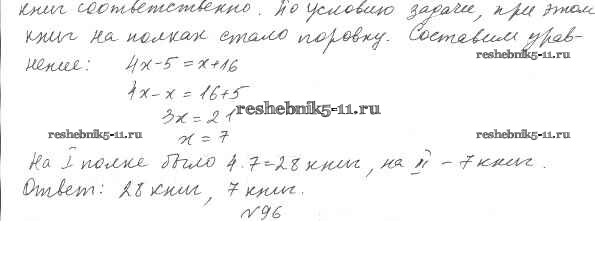 книг соответственно. По условию задачи, при этом
книг на полках стало поровну. Составим урав-
reshebnik5-11.ru
нение: 4x-5=x+16
4x-x=16+5
reshebnik5-11.ru
3x=21
reshebnik5-11.ru
x=7
На I полке было 4·7=28 книг, на II - 7 книг.
Ответ: 28 книг, 7 книг.
№96